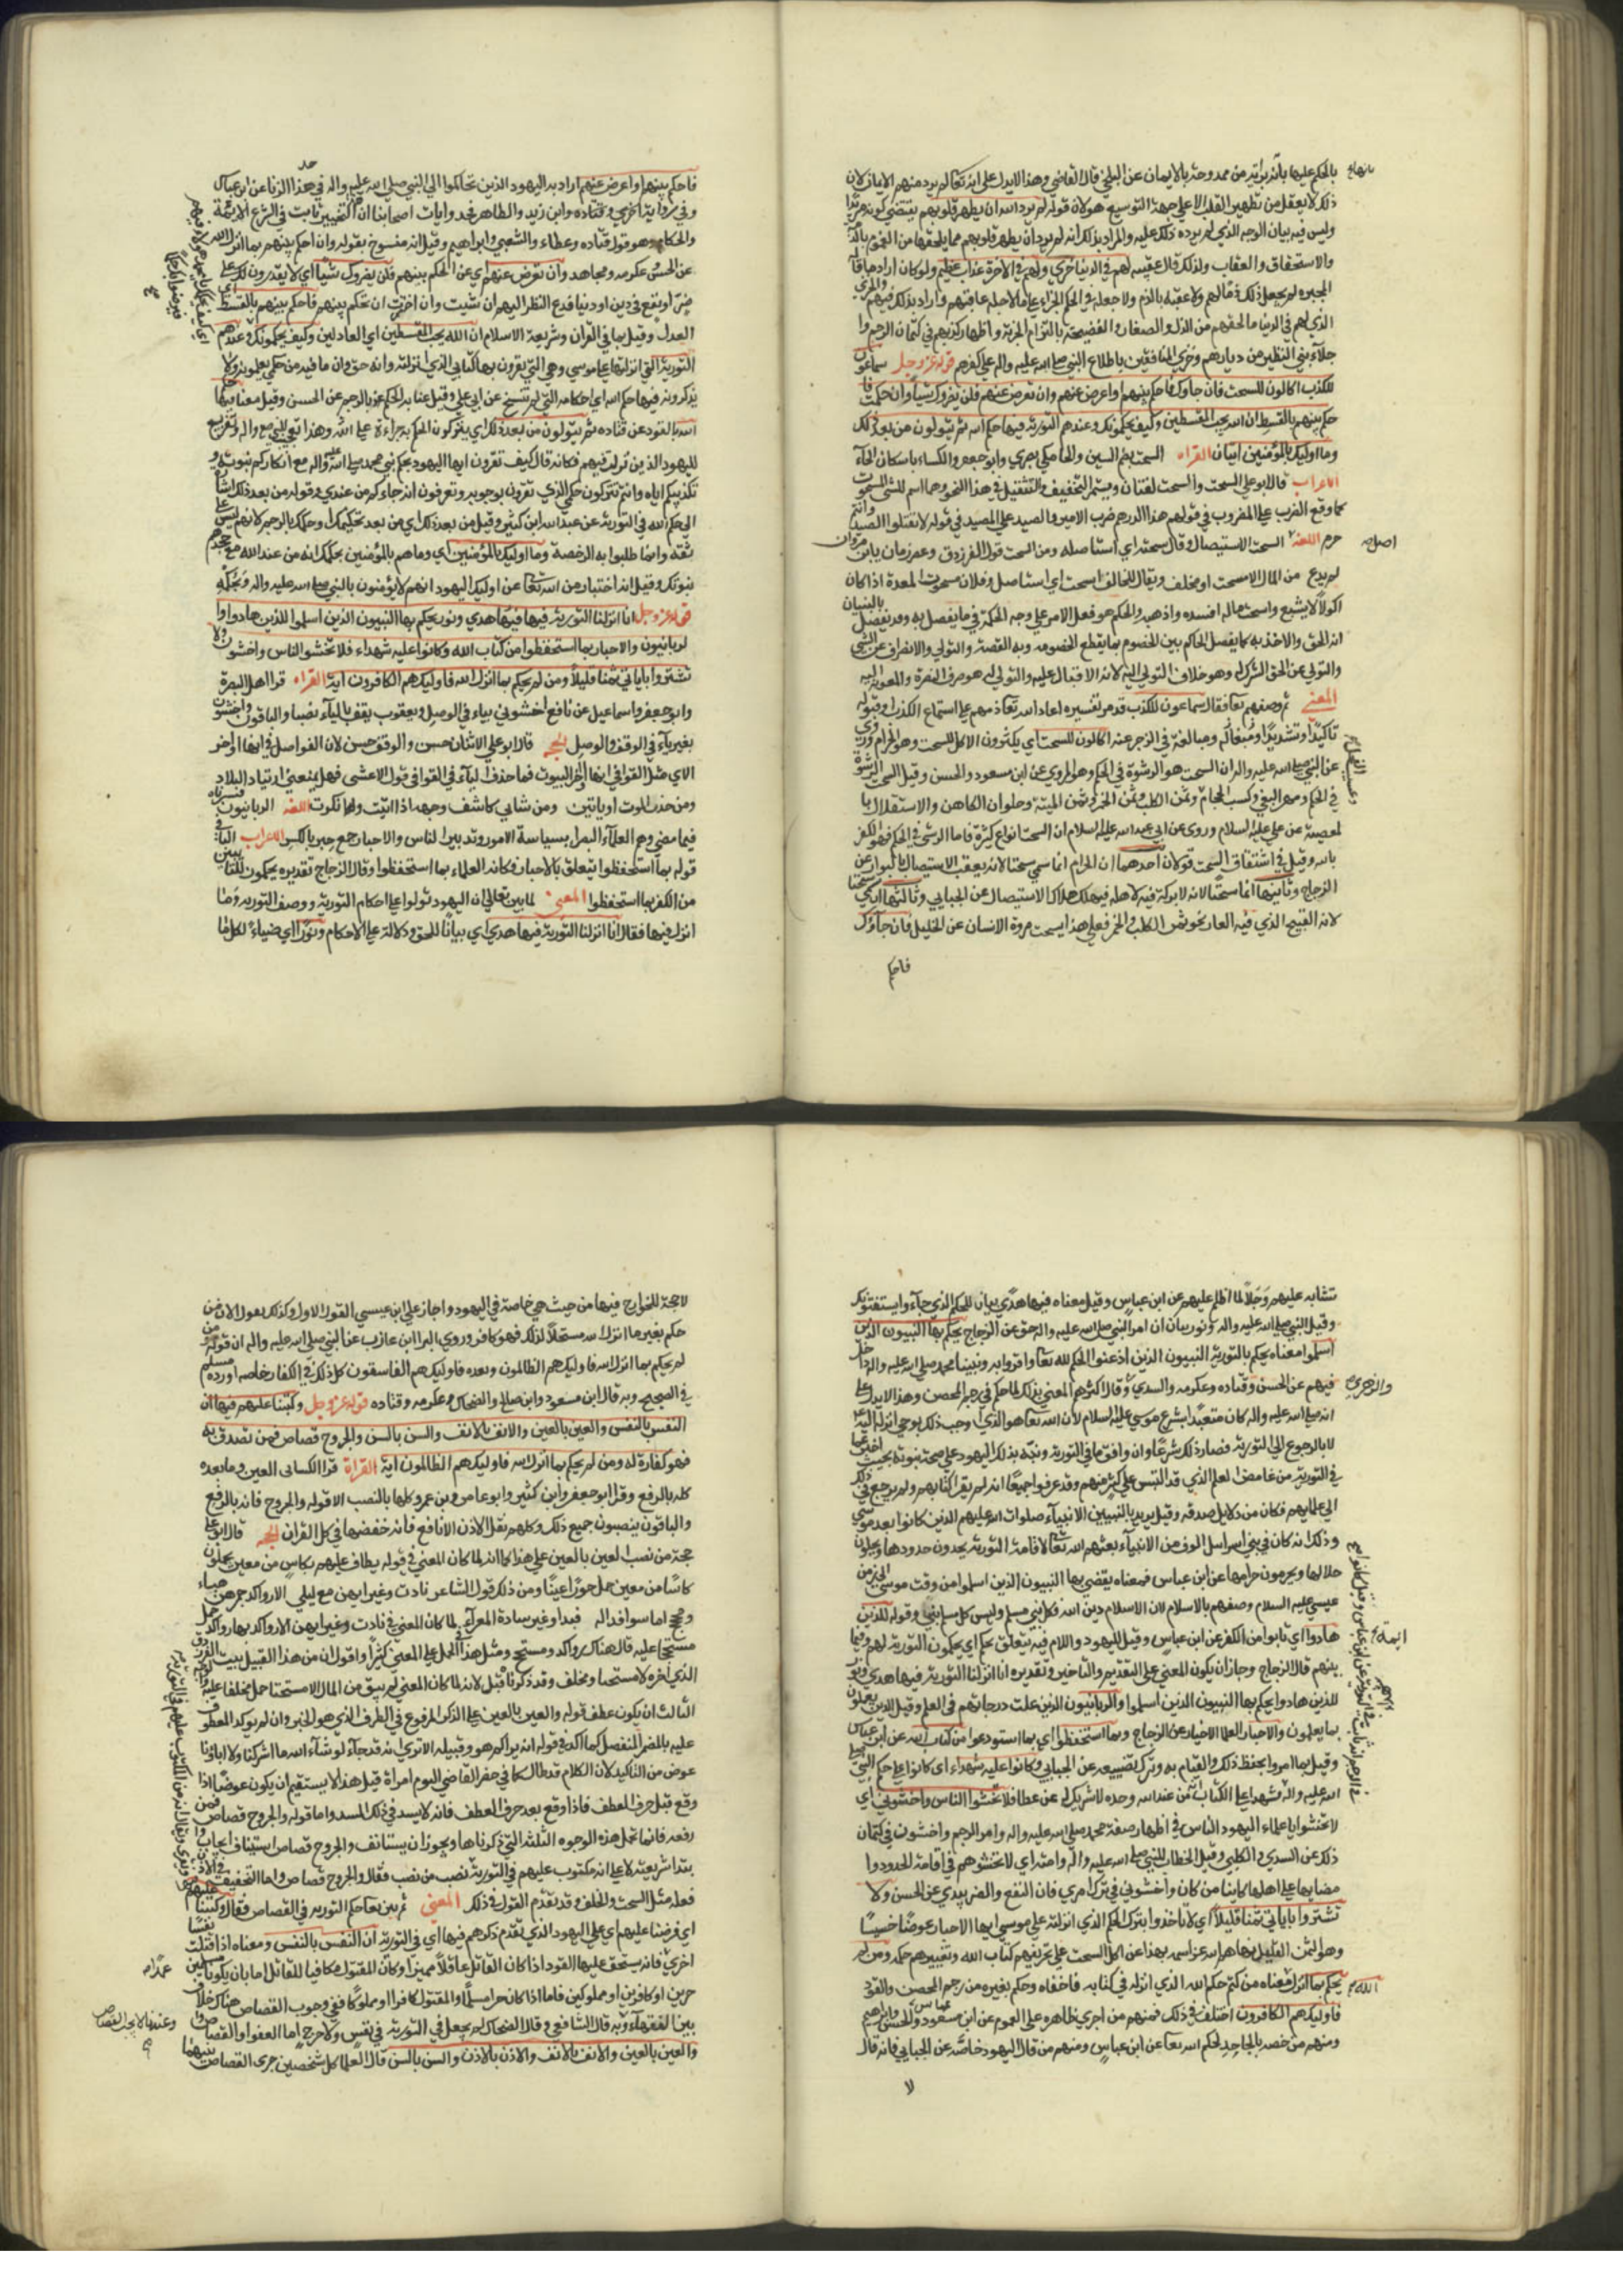 بالحكم عليها بأنه بريئة من ممدوحة بالايمان عن البلخي قال القاضي وهذا لا يدل على انه تعالى لم يرد منهم الايمان لان
ذلك لا يعقل من تطهير القلب الا على جهة التوسع هو لان قوله لم يرد الله ان يطهر قلوبهم يقتضي كونه مريدا
وليس فيه بيان الوجه الذي لم يرد ذلك عليه والمراد بذلك انه لم يرد ان يطهر قلوبهم مما يلحقها من الغموم بالذم
والاستحقاق والعقاب ولذلك قال عقيبه لهم في الدنيا خزي ولهم في الاخرة عذاب عظيم ولو كان اراد ما قاله
المجبره لم يجعل ذلك ذما لهم ولا عقبه بالذم ولا جعله في الحكم الجزاء على ما لاجله عاقبهم واراد بذلك فيهم والخزي
الذي لهم في الدنيا ما لحقهم من الذل والصغار والفضيحة بالتزام الجزية واظهار كذبهم في كتمان الرجم و
جلاء بني النظير من ديارهم وخزي المنافقين باطلاع النبي صلى الله عليه واله على كفرهم قوله عز وجل سماعون
للكذب اكالون للسحت فان جاؤك فاحكم بينهم او اعرض عنهم وان تعرض عنهم فلن يضروك شيئا وان حكمت فا
حكم بينهم بالقسط ان الله يحب المقسطين وكيف يحكمونك وعندهم التورية فيها حكم الله ثم يتولون من بعد ذلك
وما اوليك بالمؤمنين ايتان القراه السحت بضم السين والحا مكي بصري وابو جعفر والكساء باسكان الحآء
الاعراب قال ابو علي السحت والسحت لغتان ويستمر التخفيف والتثقيل في هذا النحو وهما اسم للشي المسحوت
كما وقع الضرب على المضروب في قولهم هذا الدرهم ضرب الامير والصيد على المصيد في قوله لا تقتلوا الصيد وانتم
حرم اللغه السحت الاستيصال وقال سحته اي استاصله ومن السحت قول الفرزدق وعض زمان يابن مروان
لم يدع من المال الا مسحت او مخلف ويقال للحالق اسحت اي استاصل وفلان مسحوت المعدة اذا كان
اكولا لا يشبع واسحت ماله افسده واذهبه والحكم هو فعل الامر على وجه الحكمة في ما يفصل به وقد يفصل بالبنيان
انه الحق والاخذ به كما يفصل الحاكم بين الخصوم بما يقطع الخصومه وبه القصة والتولي والانصراف عن الشي
والتولي عن الحق الترك له وهو خلاف التولي اليه لانه الاقبال عليه والتولي له هو صرف النصرة والمعونة اليه
المعنى ثم وصفهم تعا فقال سماعون للكذب قد مر تفسيره اعاد الله تعا ذمهم على استماع الكذب وقبوله
تاكيدا وتشديدا ومبغاله ومبالغة في الزجر عنه اكالون للسحت اي يكثرون الاكل للسحت وهو الحرام وروي
عن النبي صلى الله عليه واله ان السحت هو الرشوة في الحكم وهو المروي عن ابن مسعود والحسن وقيل السحت الرشوة
في الحكم ومهر البغي وكسب الحجام وثمن الكلب وثمن الخمر وثمن الميتة وحلوان الكاهن والاستقلال با
لمعصية عن علي عليه السلام وروي عن ابي عبد الله عليه السلام ان السحت انواع كثيرة فاما الرشى في الحكم فهو الكفر
بالله وقيل في اشتقاق السحت قولان احدهما ان الحرام انما سمي سحتا لانه يعقب الاستيصال بالبوار عن
الزجاج وثانيها انما سحتا لانه لا بركة فيه لاهله فيهلك هلاك الاستيصال عن الجبايي وثالثها انه سمي سحتا
لانه القبيح الذي فيه العار نحو ثمن الكلب والخمر فعلى هذا يسحت مروة الانسان عن الخليل فان جاؤك
فاحكم
فاحكم بينهم او اعرض عنهم اراد به اليهود الذين تحاكموا الى النبي صلى الله عليه واله في حد هذا الزنا عن ابن عباس
وفي رواية اخرى وقتاده وابن زيد والظاهر في روايات اصحابنا ان التخيير ثابت في الشرع للايمة
والحكام وهو قول قتاده وعطاء والشعبي وابراهيم وقيل انه منسوخ بقوله وان احكم بينهم بما انزل الله
عن الحسن وعكرمه ومجاهد وان تعرض عنهم اي عن الحكم بينهم فلن يضروك شيئا اي لا يقدرون لك على
ضر او نفع في دين او دنيا فدع النظر اليهم ان شيت وان اخترت ان تحكم بينهم فاحكم بينهم بالقسط اي
العدل وقيل بما في القران وشريعة الاسلام ان الله يحب المقسطين اي العادلين وكيف يحكمونك وعندهم
التورية التي انزلتها على موسى وهي التي يقرون بها كتابي الذي انزلته وانه حق وان ما فيه من حكمي يعلمونه ولا
يذكرونه فيها حكم الله اي احكامه التي لم تنسخ عن ابي علي وقيل عنا به الحكم عنه بالرجم عن الحسن وقيل معناه فيها حكم
الله بالقود عن قتاده ثم يتولون من بعد ذلك اي يتركون الحكم به جراءة على الله وهذا تعجيب للنبي صلع واله وتقريع
لليهود الذين نزلت فيهم فكانه قال كيف تقرون ايها اليهود بحكم نبيي محمد صلى الله عليه واله مع انكاركم نبوته و
تكذيبكم اياه وانتم تتركون حكمي الذي تقرون بوجوبه وتعرفون انه جاءكم من عندي وقوله من بعد ذلك اشارة
الى حكم الله في التورية عن عبد الله ابن كثير وقيل من بعد ذلك اي من بعد تحكيمك او حكمك بالرجم لانهم ليس على
ثقة وانما طلبوا به الرخصة وما اوليك بالمؤمنين اي وما هم بالمؤمنين بحكمك انه من عند الله مع جحدهم
نبوتك وقيل انه اختبار من الله تعا عن اوليك اليهود انهم لا يؤمنون بالنبي صلى الله عليه واله وبحكمه
قوله عز وجل انا انزلنا التورية فيها هدي ونور يحكم بها النبيون الذين اسلموا للذين هادوا وا
لربانيون والاحبار بما استحفظوا من كتاب الله وكانوا عليه شهداء فلا تخشوا الناس واخشون ولا
تشتروا باياتي ثمنا قليلا ومن لم يحكم بما انزل الله فاوليك هم الكافرون اية القراه قرا اهل البصرة
وابو جعفر واسماعيل عن نافع اخشوني بياء في الوصل ويعقوب يقف بالياء ايضا والباقون واخشون
بغير ياء في الوقف والوصل الحجه قال ابو علي الاثبات حسن والوقف حسن لان الفواصل في انها اواخر
الاي مثل القوافي في انها اخر البيوت فما حذف الياء في القوافي قول الاعشى فهل يمنعني ارتياد البلاد
ومن حذر الموت او ياتين ومن شاني كاشف وجهه اذا اتيت ولها نكرت اللغه الربانيون فسرناه
فيما مضى وهم العلماء البصراء بسياسة الامور وتدبير الناس والاحبار جمع حبر بالكسر الاعراب الباء في
قوله بما استحفظوا يتعلق بالاحبار فكانه العلماء بما استحفظوا وقال الزجاج تقديره يحكمون للتائبين
من الكفر بما استحفظوا المعنى لما بين تعالى ان اليهود تولوا على احكام التورية ووصف التورية وما
انزل فيها فقال انا انزلنا التورية فيها هدي اي بيانا للحق ودلالة على الاحكام ونورا اي ضياء لكل ما
تشابه عليهم وجلا لما اظلم عليهم عن ابن عباس وقيل معناه فيها هدي بيان للحكم الذي جآء وايستفتونك
وقيل النبي صلى الله عليه واله ونور بيان ان امر النبي صلى الله عليه واله حق عن الزجاج يحكم بها النبيون الذين
اسلموا معناه يحكم بالتورية النبيون الذين اذعنوا لحكم الله تعا واقروا به ونبينا محمد صلى الله عليه واله داخل
فيهم عن الحسن وقتاده وعكرمه والسدي والزهري وقال اكثرهم المعني بذلك لما حكم في رجم المحصن وهذا لا يدل على
انه صلى الله عليه واله كان متعبدا بشرع موسى عليه السلام لان الله تعا هو الذي اوجب ذلك بوحي انزله اليه
لا بالرجوع الى التورية فصار ذلك شرعا وان وافق ما في التورية ونبه بذلك اليهود على صحة نبوته بحيث اخبر عما
في التورية من غامض العلم الذي قد التبس على كثير منهم وقد عرفوا جميعا انه لم يقرا كتابهم ولم يرجع في ذلك
الى علمايهم فكان من دلايل صدقه وقيل يريد بالنبيين الانبيآء صلوات الله عليهم الذين كانوا بعد موسى
وذلك انه كان في بني اسرايل الوف من الانبيآء بعثهم الله تعا لاقامة التورية يحدون حدودها ويحلون
حلالها ويحرمون حرامها عن ابن عباس فمعناه يقضي بها النبيون الذين اسلموا من وقت موسى الى زمن
عيسى عليه السلام وصفهم بالاسلام لان الاسلام دين الله فكل نبي مسلم وليس كل مسلم نبي وقوله للذين
هادوا اي تابوا من الكفر عن ابن عباس وقيل لليهود واللام فيه يتعلق بحكم اي يحكمون التورية لهم وفيما
بينهم قال الزجاج وجائز ان يكون المعنى على التقديم والتاخير وتقديره انا انزلنا التورية فيها هدي ونور
للذين هادوا يحكم بها النبيون الذين اسلموا والربانيون الذين علت درجاتهم في العلم وقيل الذين يعملون
بما يعلمون والاحبار العلماء الاخيار عن الزجاج وبما استحفظوا اي بما استودعوا من كتاب الله عن ابن عباس
وقيل بما امروا بحفظ ذلك والقيام به وترك تضييعه عن الجبايي وكانوا عليه شهداء اي كانوا على حكم النبي صلى
الله عليه واله شهداء على الكتاب انه من عند الله وحده لا شريك له عن عطا فلا تخشوا الناس واخشوني اي
لا تخشوا يا علماء اليهود الناس في اظهار صفة محمد صلى الله عليه واله وامر الرجم واخشون في كتمان
ذلك عن السدي والكلبي وقيل الخطاب للنبي صلى الله عليه واله وامته اي لا تخشوهم في اقامة الحدود وا
مضايها على اهلها كاينا من كان واخشوني في ترك امري فان النفع والضر بيدي عن الحسن ولا
تشتروا باياتي ثمنا قليلا اي لا تاخذوا بترك الحكم الذي انزلته على موسى ايها الاحبار عوضا خسيسا
وهو الثمن القليل نهاهم الله عز اسمه بهذا عن اكل السحت على تحريفهم كتاب الله وتغييرهم حكمه ومن لم
يحكم بما انزل الله معناه من كتم حكم الله الذي انزله في كتابه فاخفاه وحكم بغيره من رجم المحصن والقود
فاوليك هم الكافرون اختلف في ذلك فمنهم من اجرى ظاهره على العموم عن ابن مسعود والحسن وابراهيم
ومنهم من خصه بالجاحد لحكم الله تعا عن ابن عباس ومنهم من قال اليهود خاصة عن الجبايي فانه قال
لا
لا حجة للخوارج فيها من حيث هي خاصة في اليهود واجاز علي ابن عيسى القول الاول وكذلك يقول الا ان من
حكم بغير ما انزل الله مستحلا لذلك فهو كافر وروى البرا ابن عازب عن النبي صلى الله عليه واله ان قوله ومن
لم يحكم بما انزل الله فاوليك هم الظالمون وبعده فاوليك هم الفاسقون كل ذلك في الكفار خاصه اورده مسلم
في الصحيح وبه قال ابن مسعود وابن صالح والضحاك وعكرمه وقتاده قوله عز وجل وكتبنا عليهم فيها ان
النفس بالنفس والعين بالعين والانف بالانف والسن بالسن والجروح قصاص فمن تصدق به
فهو كفارة له ومن لم يحكم بما انزل الله فاوليك هم الظالمون اية القراة قرا الكسائي العين وما بعده
كله بالرفع وقرا ابو جعفر وابن كثير وابو عامر وبن عمرو كلها بالنصب الا قوله والجروح فانه بالرفع
والباقون ينصبون جميع ذلك وكلهم نقل الاذن الا نافع فانه خفضها في كل القران الحجه قال ابو علي
حجة من نصب العين بالعين على هذا كما انه لما كان المعنى في قوله يطاف عليهم بكاس من معين يحملون
كاسا من معين حمل حورا عينا ومن ذلك قول الشاعر نادت وغير ايهن مع بلى الا رواكد جمرهن هباء
ومشجج اما سوا قذاله فبدا وغير سادة المعزاء لما كان المعنى في نادت وغير ايهن الا رواكد بها رواكد حمل
مشجج عليه قال هناك رواكد ومشجج ومثل هذا في الحمل على المعنى كثيرا واقول ان من هذا القبيل بيت الفرزدق
الذي اخره الا مسحتا ومخلف وقد ذكرناه قبل لانه لما كان المعنى لم يبق من المال الا مسحتا حمل مخلفا عليه
الثالث ان يكون عطف قوله والعين بالعين على الذكر المرفوع في الظرف الذي هو الخبر وان لم يوكد المعطوف
عليه بالضمير المنفصل كما اكد في قوله انه يراكم هو وقبيله الا ترى انه قد جاء لو شآء الله ما اشركنا ولا اباؤنا
عوض من التاكيد لان الكلام قد طال كما في حضر القاضي اليوم امراة قيل هذا لا يستقيم ان يكون عوضا اذا
وقع قبل حرف العطف فاذا وقع بعد حرف العطف فانه لا يسد في ذلك المسد واما قوله والجروح قصاص فمن
رفعه فانما يحمل هذه الوجوه الثلثه التي ذكرناها ويجوز ان يستانف والجروح قصاص استيناف ايجاب وا
بتدا شريعته لا على انه مكتوب عليهم في التورية نصب من نصب فقال والجروح قصاص واما التخفيف في الاذن
فعله مثل السحت والحلف وقد تقدم القول في ذلك المعنى ثم بين تعا حكم التوريه في القصاص فقال وكتبنا عليهم
اي فرضنا عليهم اي على اليهود الذي تقدم ذكرهم فيها اي في التورية ان النفس بالنفس ومعناه اذا قتلت نفسا
اخرى فانه يستحق عليها القود اذا كان القاتل عاقلا مميزا وكان المقتول مكافيا للقاتل اما بان يكونا مسلمين
حرين او كافرين او مملوكين فاما اذا كان حرا مسلما والمقتول كافرا او مملوكا ففي وجوب القصاص هناك خلاف
بين الفقهآء وبه قال الشافعي وقال الضحاك لم يجعل في التورية في نفس ولا جرح اما العفو او القصاص
والعين بالعين والانف بالانف والاذن بالاذن والسن بالسن قال العلما كل شخصين جرى القصاص بينهما